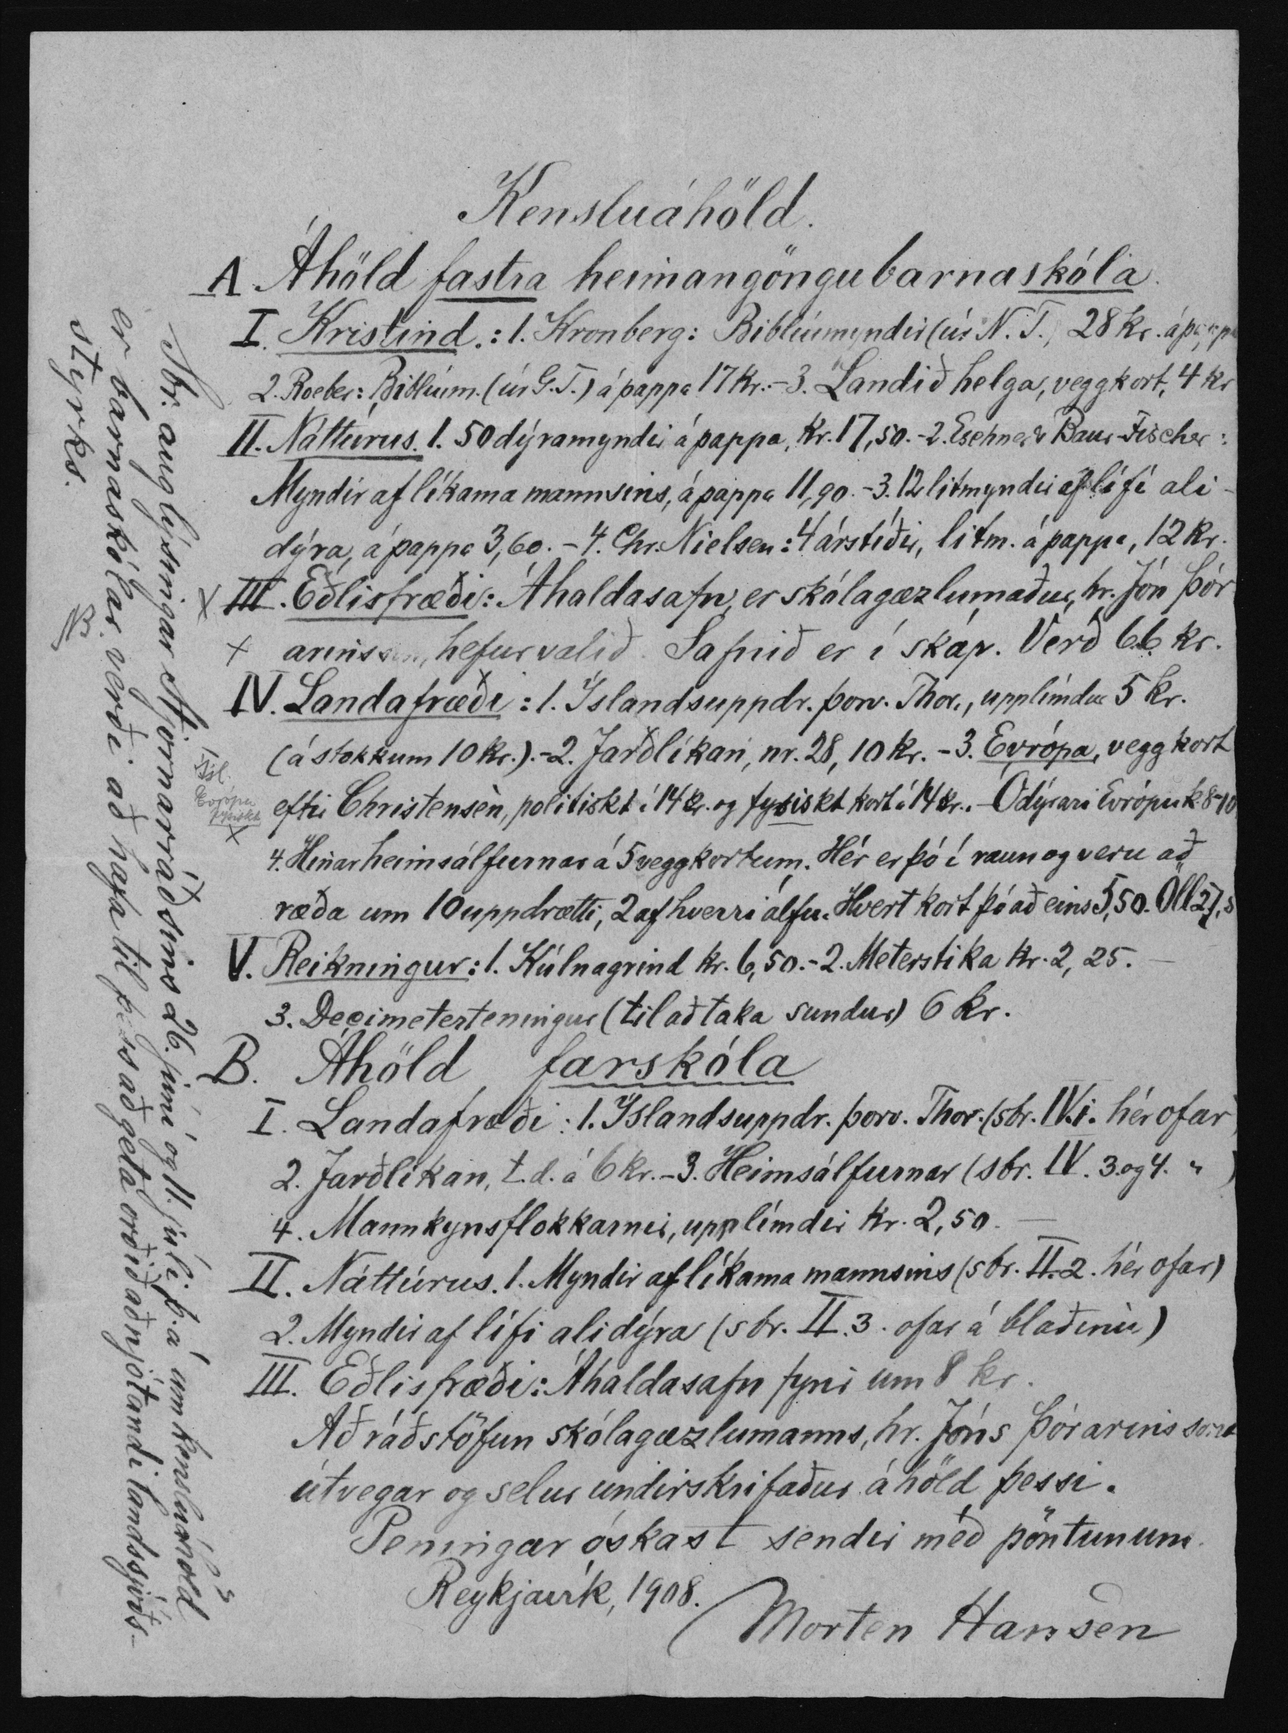 Kensluáhöld.
A. Áhöld fastra heimangöngubarnaskóla.
I. Kristind.: 1. Kronberg: Biblíumyndir (úr N. T.) 28 kr. á pappa
2. Roeber: Biblíum. (úr G. T.) á pappa 17 kr. - 3. Landið helga, veggkort, 4 kr
II. Náttúrus. 1. 50 dýramyndir á pappa, kr. 17,50. - 2. Eschner & Baur-Fischer:
Myndir af líkama mannsins, á pappa 11,90. - 3. 12 litmyndir af lífi ali-
dýra, á pappa 3,60. - 4. Chr. Nielsen: 4 árstíðir, litm. á pappa, 12 kr.
X III. Eðlisfræði: Áhaldasafn, er skólagæzlumaður, hr. Jón Þór
+ arinsson, hefur valið. Safnið er í skáp. Verð 66 kr.
IV. Landafræði: 1. Íslandsuppdr. Þorv. Thor., upplímdur 5 kr.
(á stokkum 10 kr.). - 2. Jarðlíkan, nr. 28, 10 kr. - 3. Evrópa, veggkort
eftir Christensen, politiskt á 14 kr. og fysiskt kort á 14 kr. - Ódýrari Evrópuk. 8-10
4. Hinar heimsálfurnar á 5 veggkortum. Hér er þó í raun og veru að
ræða um 10 uppdrætti, 2 af hverri álfu. Hvert kort þó að eins 5,50. Öll 27,5
V. Reikningur: 1. Kúlnagrind kr. 6,50. - 2. Meterstika kr. 2,25. -
3. Decimeterteningur (til að taka sundur) 6 kr.
B. Áhöld farskóla
I. Landafræði: 1. Íslandsuppdr. Þorv. Thor. (sbr. IV.1. hér ofar)
2. Jarðlíkan, t.d. á 6 kr. - 3. Heimsálfurnar (sbr. IV. 3. og 4. ")
4. Mannkynsflokkarnir, upplímdir kr. 2,50. -
II. Náttúrus. 1. Myndir af líkama mannsins (sbr. II. 2. hér ofar)
2. Myndir af lífi alidýra (sbr. II. 3. ofar á blaðinu)
III. Eðlisfræði: Áhaldasafn fyrir um 8 kr.
Að ráðstöfun skólagæzlumanns, hr. Jóns Þórarinssonar
útvegar og selur undirskrifaður áhöld þessi.
Peningar óskast sendir með pöntunum.
Reykjavík, 1908.
Morten Hansen
Ísl.
Evrópa
fysiskt
X
NB.
Sbr. auglýsingar Stjórnarráðsins 26. júní og 11. júlí þ. á. um kensluáhöld
er barnaskólar verði að hafa til þess að geta orðið aðnjótandi landssjóðs-
styrks.